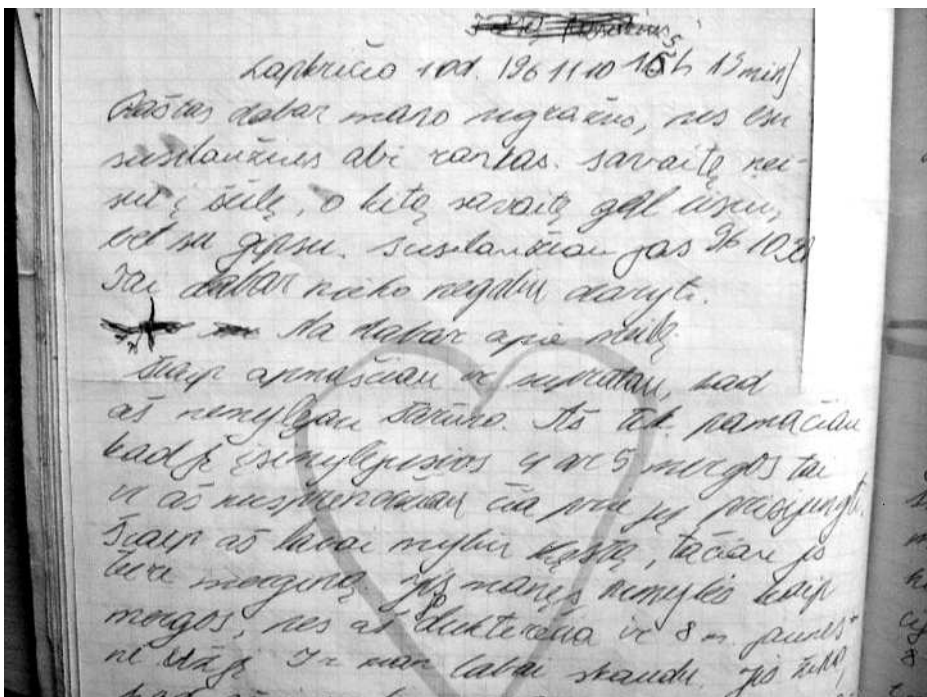 Lapkričio 10d. 1996 11 10 15h 19min
Raštas dabar mano negražus, nes esu
susilaužius abi rankas. Savaitę nei-
siu į šūlę, o kitą savaitę gal eisiu,
bet su gipsu. Susilaužiau jas 96 10 30
Tai dabar nieko negaliu daryti.
Na dabar apie meilę
Šiaip apmąsčiau ir supratau, kad
aš nemylėjau Šarūno. Aš tik pamačiau
kad jį įsimylėjusios 4 ar 5 mergos tai
ir aš nusprendžiau čia prie jų prisijungti.
Šiaip aš labai myliu Kęstą, tačiau jis
turi merginą jis manęs nemylės kaip
mergos, nes aš dukterėčia ir 8 m. jaunes-
nė už jį Ir man labai skaudu. jis žino,